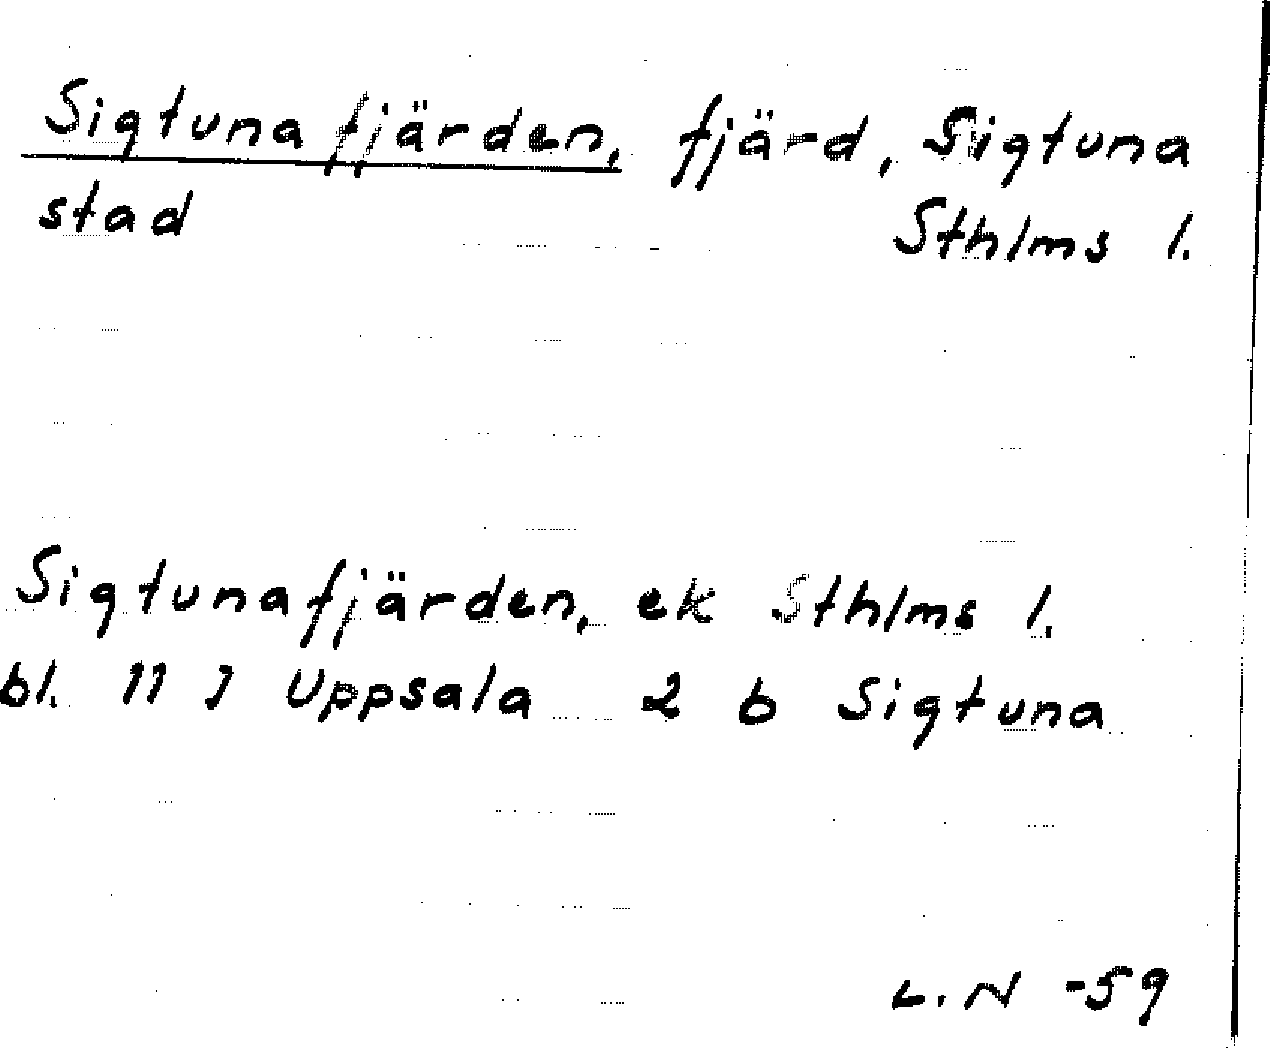 Sigtunafjärden, fjärd, Sigtuna
stad Sthlms l.
Sigtunafjärden, ek Sthlms l.
bl. 11 I Uppsala 2 b Sigtuna
L.N -59